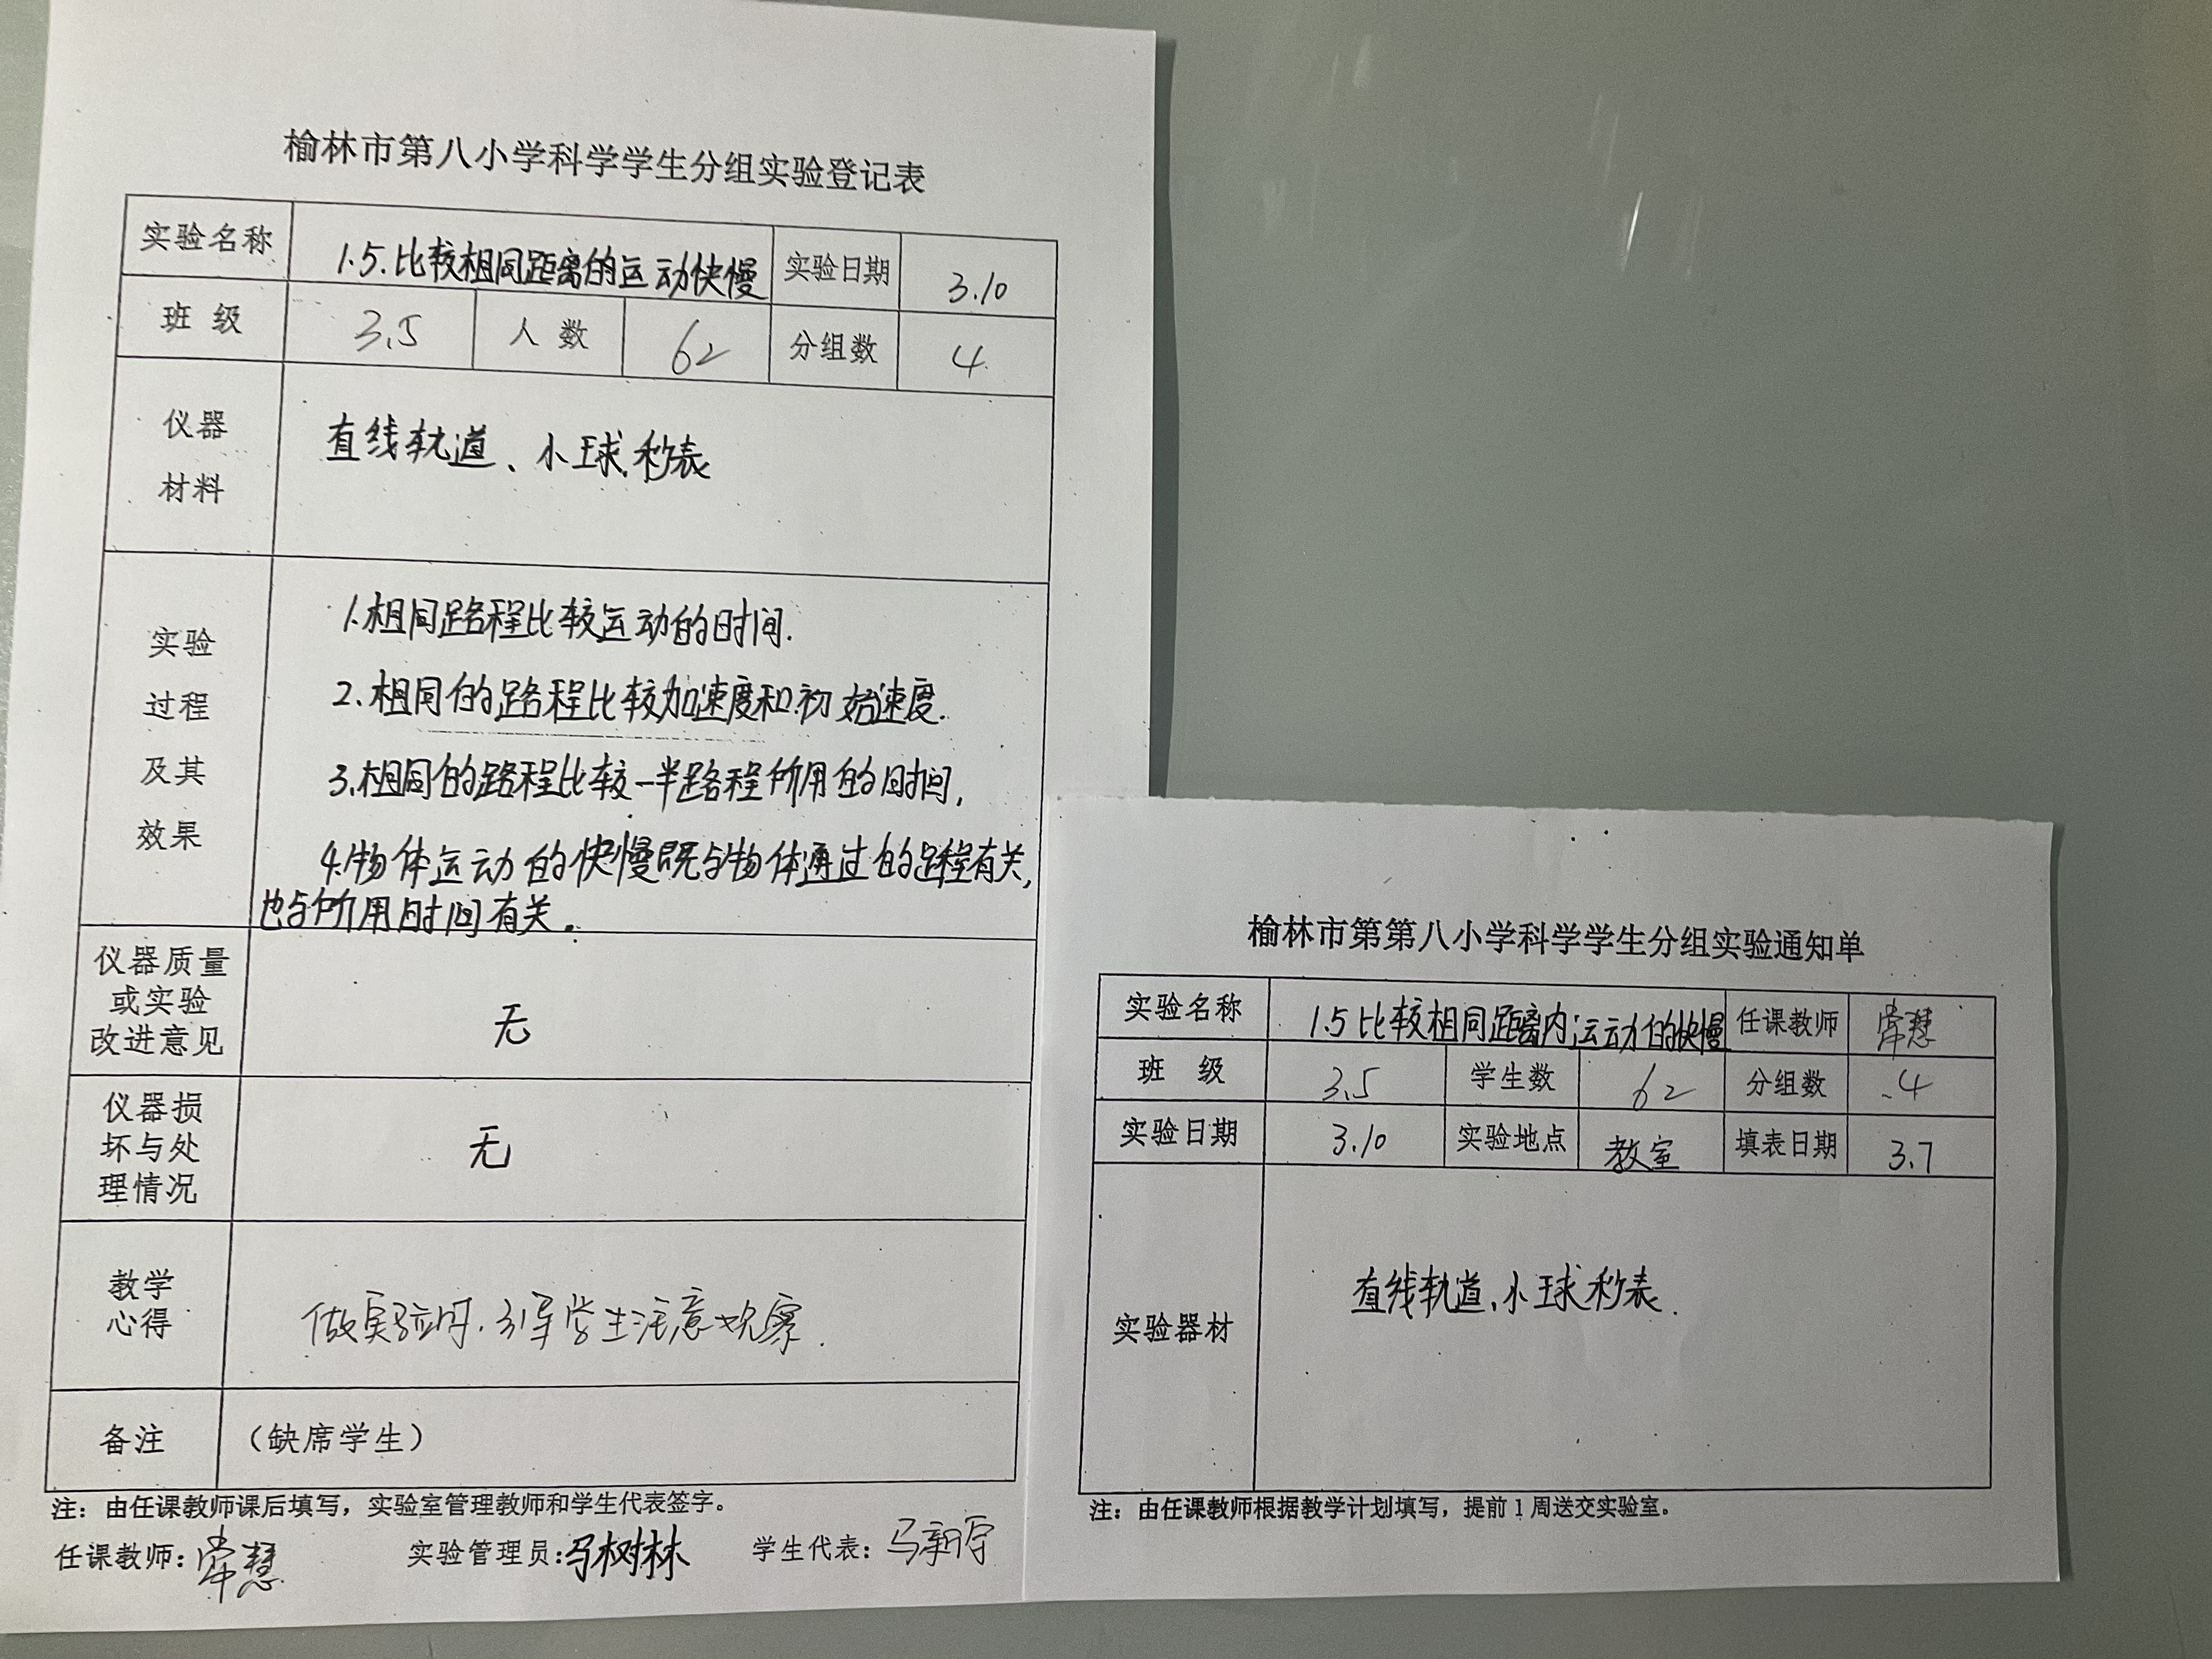 榆林市第八小学科学学生分组实验登记表
实验名称 1.5.比较相同距离的运动快慢 实验日期 3.10
班级 3.5 人数 62 分组数 4
仪器
材料
直线轨道、小球、秒表
实验
过程
及其
效果
1.相同路程比较运动的时间.
2.相同的路程比较加速度和初始速度.
3.相同的路程比较一半路程所用的时间,
4.物体运动的快慢既与物体通过的路程有关,
也与所用时间有关。
仪器质量
或实验
改进意见
无
仪器损
坏与处
理情况
无
教学
心得
做实验时.引导学生注意观察.
备注 （缺席学生）
注：由任课教师课后填写，实验室管理教师和学生代表签字。
任课教师：常慧 实验管理员：马树林 学生代表：马新宇
榆林市第第八小学科学学生分组实验通知单
实验名称 1.5比较相同距离内运动的快慢 任课教师 常慧
班级 3.5 学生数 62 分组数 4
实验日期 3.10 实验地点 教室 填表日期 3.7
实验器材 直线轨道、小球 秒表.
注：由任课教师根据教学计划填写，提前1周送交实验室。